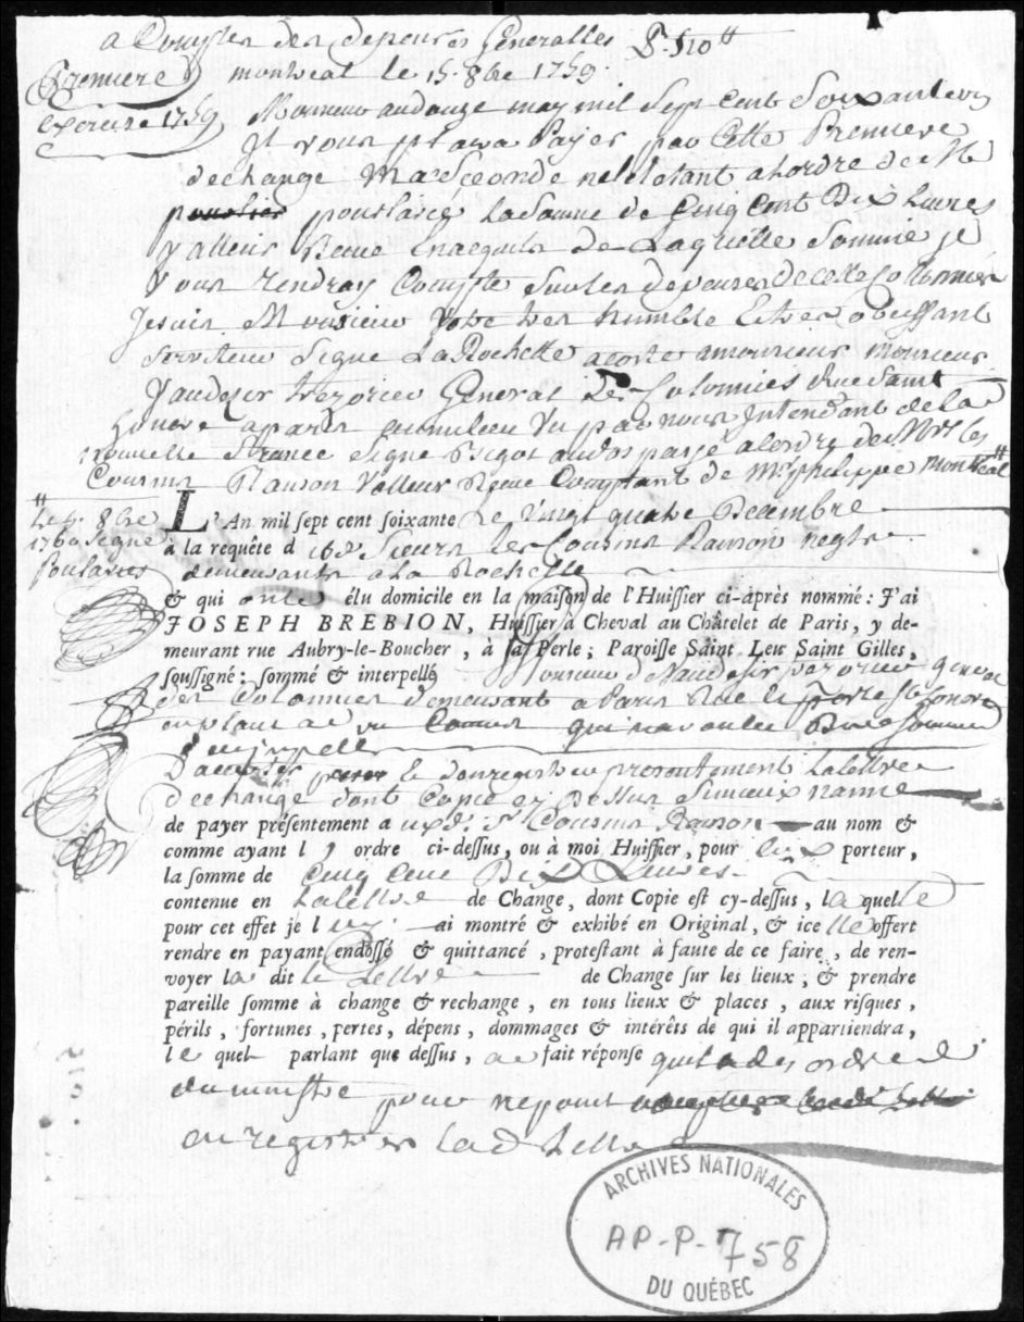 a Compter des depenses Generalles P. 510ᵗᵗ
Premiere montreal le 15. 8bre 1759.
exercice 1759 Monsieur au douze may mil Sept Cent Soixante un
Il vous plaira Payer par Cette Premiere
dechange Ma Seconde ne letant a lordre de M
pouslarié La Somme de Cinq Cent Dix Livres
valleur Recue En acquits de Laquelle Somme je
vous Rendray Compte Sur les depenses de cette Collonnie
Je suis Monsieur Votre tres humble Et tres obeissant
Serviteur Signé La Rochette a coste a monsieur Monsieur
Vaudesir trezorier General des Colonnies Rue Saint
honoré a paris au milieu Vu par nous Intendant de la
nouvelle France Signé Bigot au dos passé a lordre de Mrs les
Cousins Ranson Valleur Recue Comptant de Mr philippe Montreal
Le 8bre
1760 Signé
Pouslariés
L'An mil sept cent soixante Le Vingt quatre Decembre
à la requête d Sieurs les Cousins Ranson negts
demeurants a La Rochelle
& qui ont élu domicile en la maison de l'Huissier ci-après nommé : J'ai
JOSEPH BREBION, Huissier à Cheval au Châtelet de Paris, y de-
meurant rue Aubry-le-Boucher, à la Perle ; Paroisse Saint Leu Saint Gilles,
soussigné : sommé & interpellé Monsieur de Vaudesir trezorier general
des Colonnies demeurant a Paris Rue St honoré
parlant a
D'accepter et d'enregistrer presentement La lettre
dechange dont Copie cy Dessus Sinon
de payer présentement a Srs Cousins Ranson au nom &
comme ayant l ordre ci-dessus, ou à moi Huissier, pour eux porteur,
la somme de Cinq Cent Dix Livres
contenue en La lettre de Change, dont Copie est cy-dessus, la quelle
pour cet effet je l uy ai montré & exhibé en Original, & ice lle offert
rendre en payant endossé & quittancé, protestant à faute de ce faire, de ren-
voyer la dit te Lettre de Change sur les lieux, & prendre
pareille somme à change & rechange, en tous lieux & places, aux risques,
périls, fortunes, pertes, dépens, dommages & intérêts de qui il appartiendra,
le quel parlant que dessus, a fait réponse quil a des ordres
du ministre pour ne point
enregistrer lad Lettre
ARCHIVES NATIONALES
AP-P-758
DU QUÉBEC